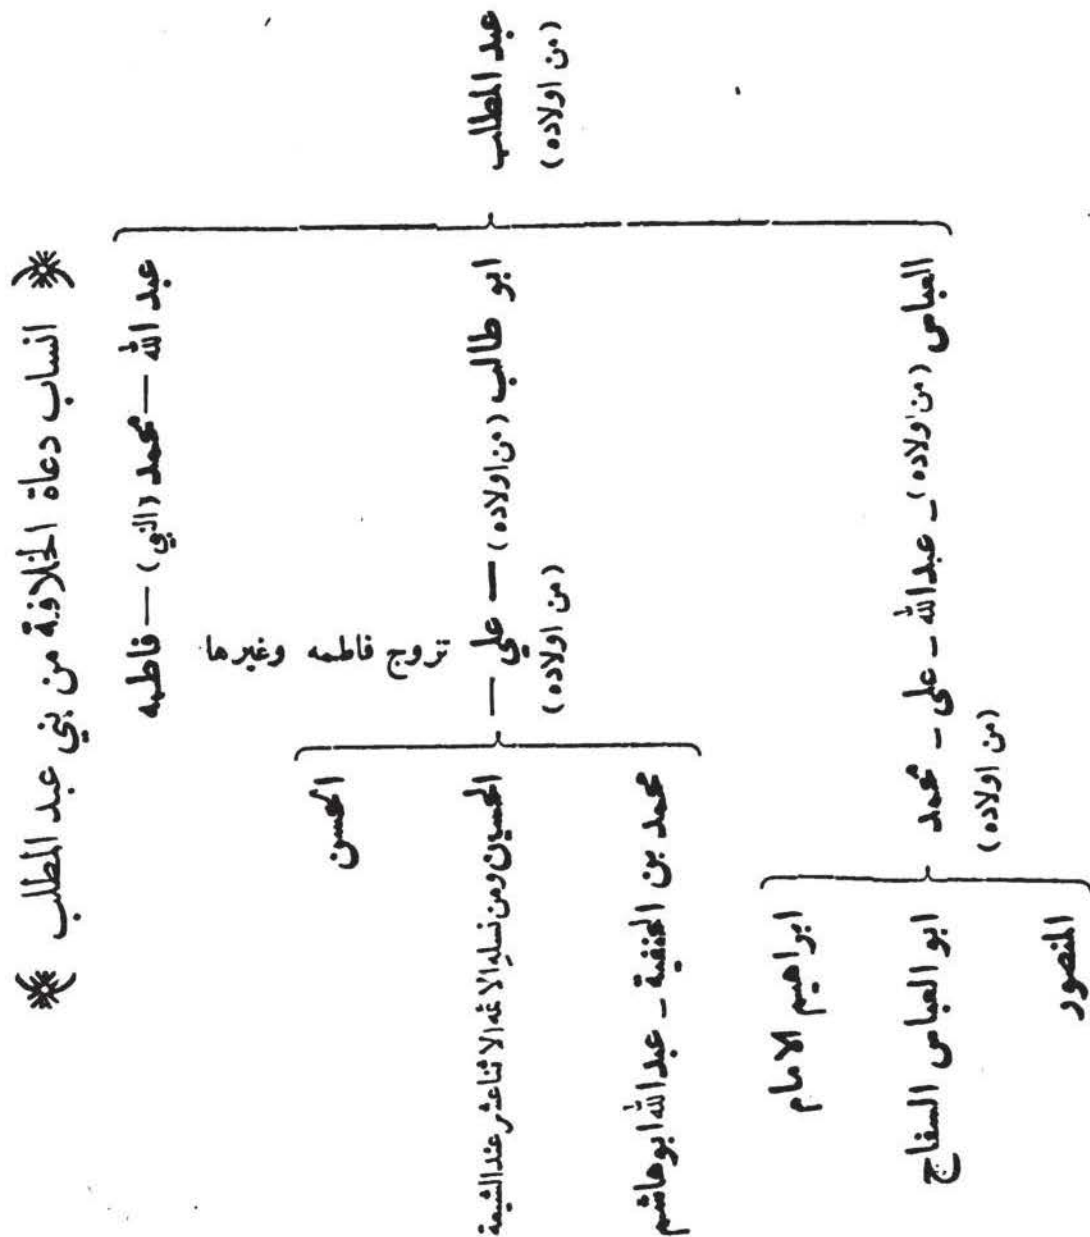 انساب دعاة الخلافة من بني عبد المطلب
عبد المطلب
(من اولاده)
عبد الله — محمد (النبي) — فاطمه
ابو طالب (من اولاده) — علي —
تزوج فاطمه وغيرها
(من اولاده)
الحسن
الحسين ومن نسله الائمه الاثنا عشر عند الشيعة
محمد بن الحنفية - عبدالله ابو هاشم
العباس (من اولاده) - عبدالله - على - محمد
(من اولاده)
ابراهيم الامام
ابو العباس السفاح
المنصور